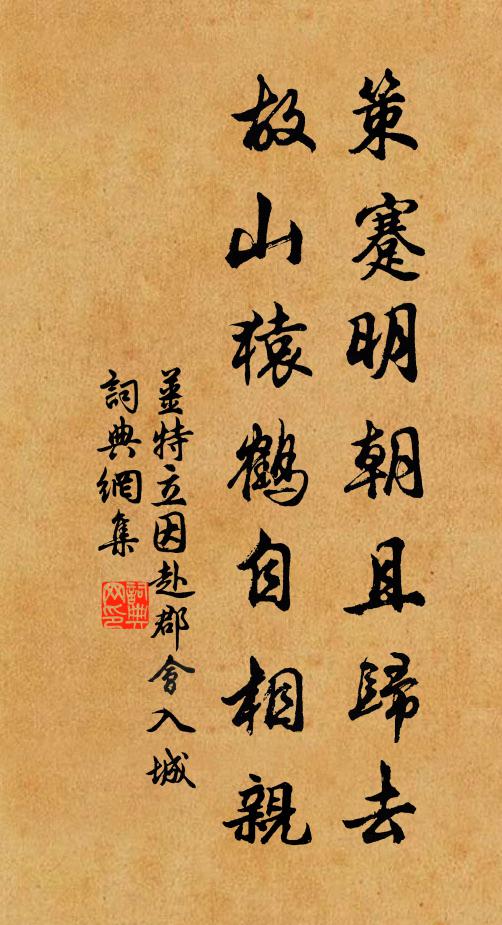 策蹇明朝且歸去
故山猿鶴自相親
姜特立因赴郡會入城
詞典網集
詞典
网印